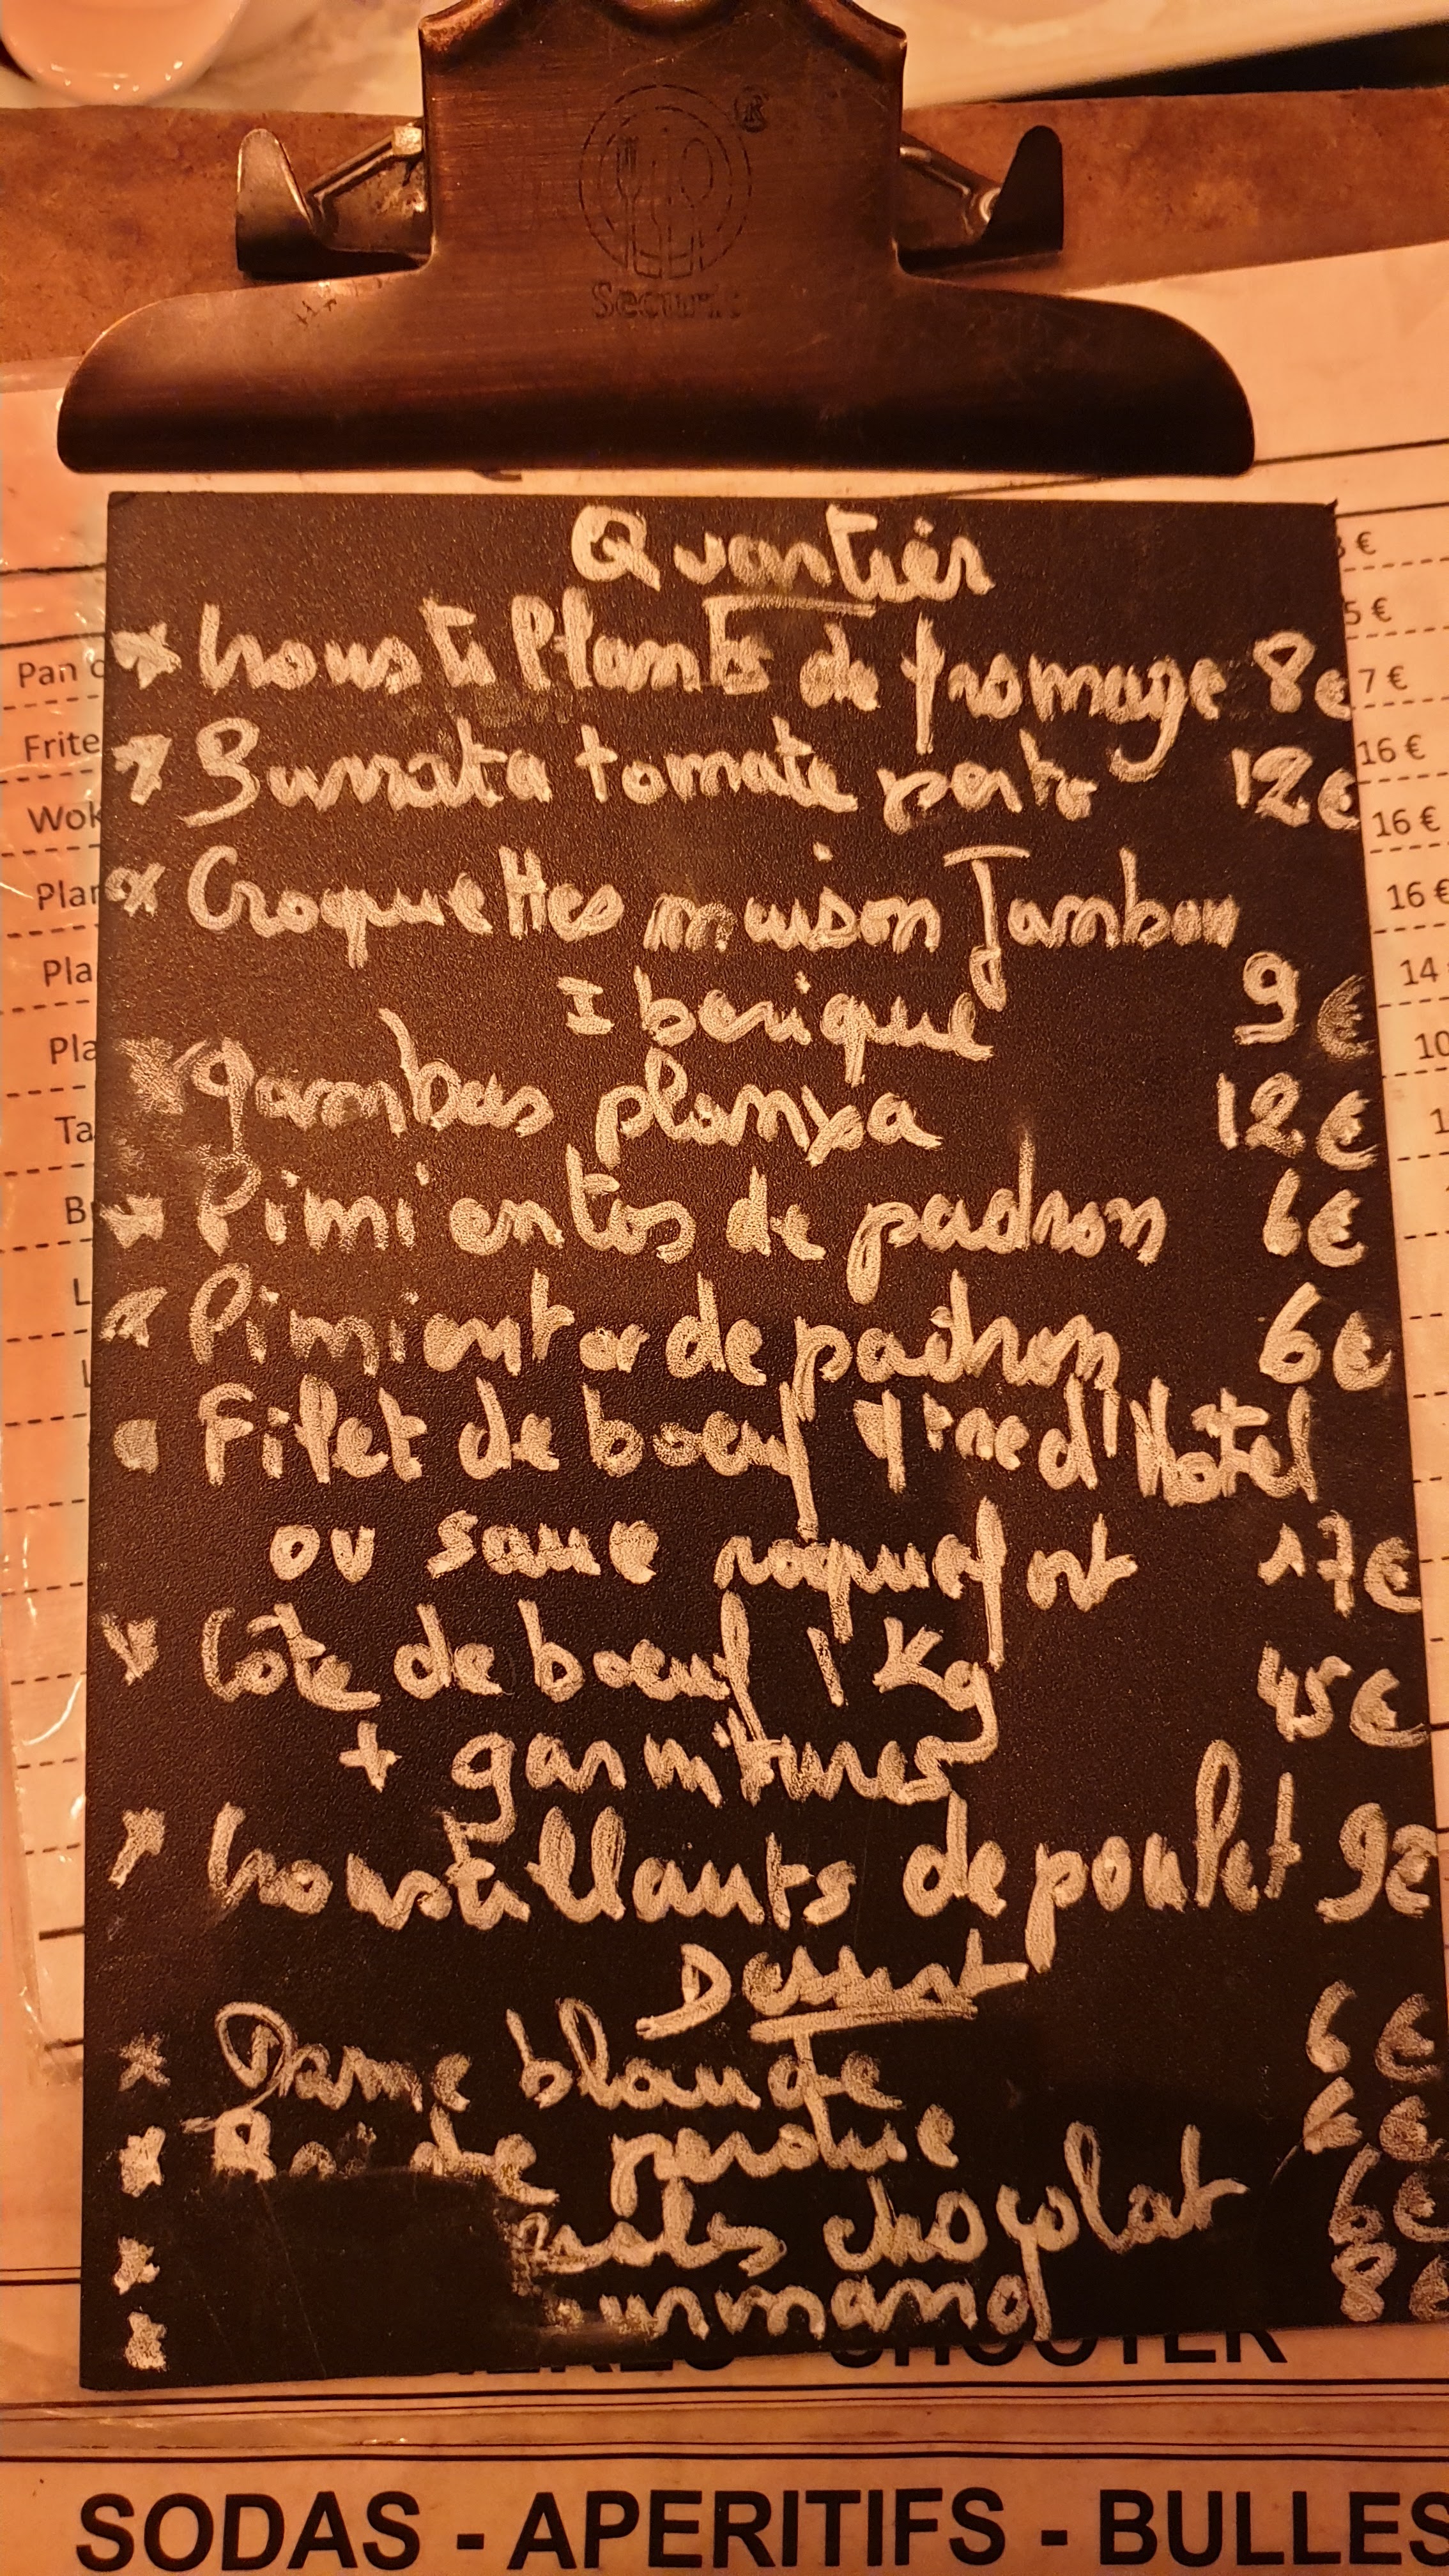 ®
Securit
Quartier
Croustillants de fromage 8€
Burrata tomate pesto 12€
Croquettes maison Jambon
Iberique 9€
Gambas planxa 12€
Pimientos de padron 6€
Pimientos de padron 6€
Filet de boeuf d'Hôtel
ou sauce roquefort 17€
Côte de boeuf 1 Kg 45€
+ garnitures
Croustillants de poulet 9€
Dessert
Dame blanche 6€
perdue 6€
chocolat 6€
8€
Pan
Frite
Wok
Plan
Pla
Pla
Ta
B
L
5 €
7 €
16 €
16 €
16 €
14
10
SHOOTER
SODAS - APERITIFS - BULLES